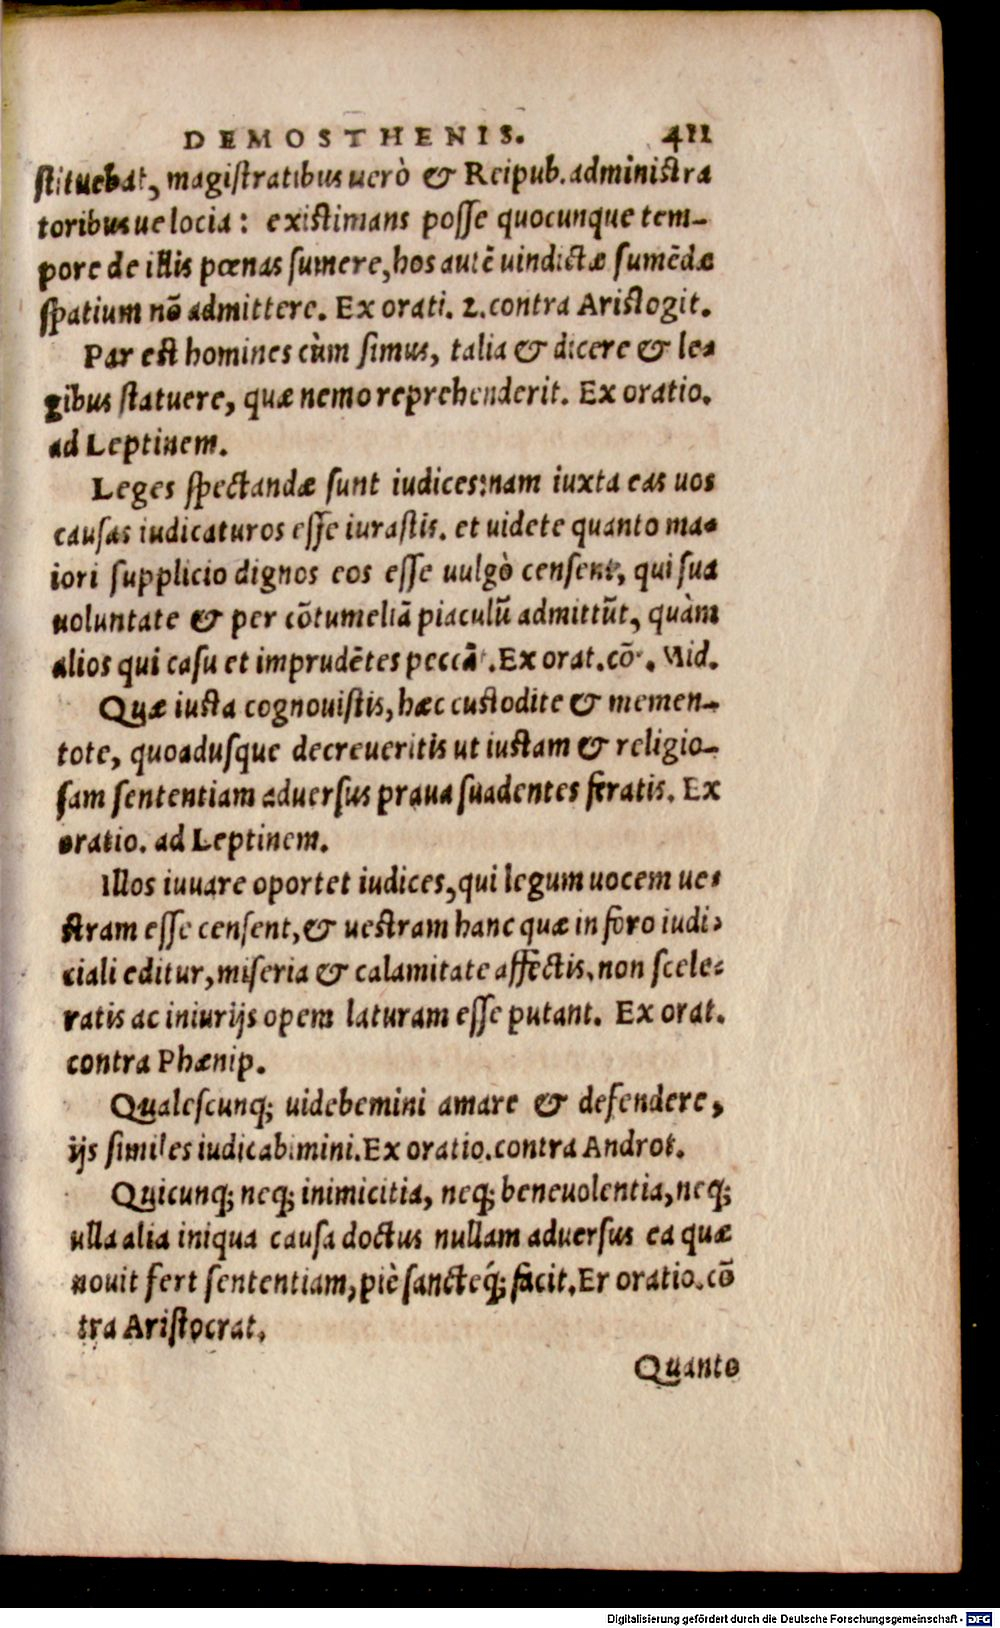 DEMOSTHENIS. 411
stituebat, magistratibus uerò & Reipub. administra
toribus uelocia: existimans posse quocunque tem-
pore de illis pœnas sumere, hos autē uindictæ sumēdæ
spatium nō admittere. Ex orati. 2. contra Aristogit.
Par est homines cùm simus, talia & dicere & le-
gibus statuere, quæ nemo reprehenderit. Ex oratio.
ad Leptinem.
Leges spectandæ sunt iudices: nam iuxta eas uos
causas iudicaturos esse iurastis. et uidete quanto ma-
iori supplicio dignos eos esse uulgò censent, qui sua
uoluntate & per cōtumeliā piaculū admittūt, quàm
alios qui casu et imprudētes peccāt. Ex orat. cōt. Mid.
Quæ iusta cognouistis, hæc custodite & memen-
tote, quoadusque decreueritis ut iustam & religio-
sam sententiam aduersus praua suadentes feratis. Ex
oratio. ad Leptinem.
Illos iuuare oportet iudices, qui legum uocem ue-
stram esse censent, & uestram hanc quæ in foro iudi-
ciali editur, miseria & calamitate affectis, non scele-
ratis ac iniurijs opem laturam esse putant. Ex orat.
contra Phænip.
Qualescunq; uidebemini amare & defendere,
ijs similes iudicabimini. Ex oratio. contra Androt.
Quicunq; neq; inimicitia, neq; beneuolentia, neq;
ulla alia iniqua causa doctus nullam aduersus ea quæ
nouit fert sententiam, piè sancteq́; facit. Er oratio. cō
tra Aristocrat.
Quanto
Digitalisierung gefördert durch die Deutsche Forschungsgemeinschaft - DFG